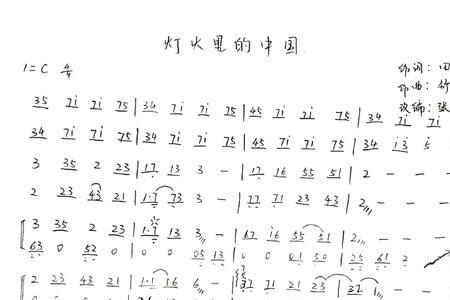 灯火里的中国
1=C 4/4
作词: 田
作曲: 舒
改编: 张
35 7i 7i 75 | 34 7i 7i 75 | 45 7i 7i 75 | 34 7i 7i
34 7i 7i 75 | 34 7i 7i 75 | 45 7i 7i 75 | 34 i3 5
3 35 2 23 | 17 13 3 — | 17 16 55 51 | 2 — —
2 23 43 21 | 1·7 73 3 — | 77 71 23 43 | 2 — —
3 35 2 23 | 1·7 13 3 | 17 16 55 51 | 2 — —
63 0 52 0 | 0 0 05 13 | 0 0 01 50 | 25 61 2
2 23 43 21 | 1·1 16 6 — | 77 71 23 23 | 31 1 —